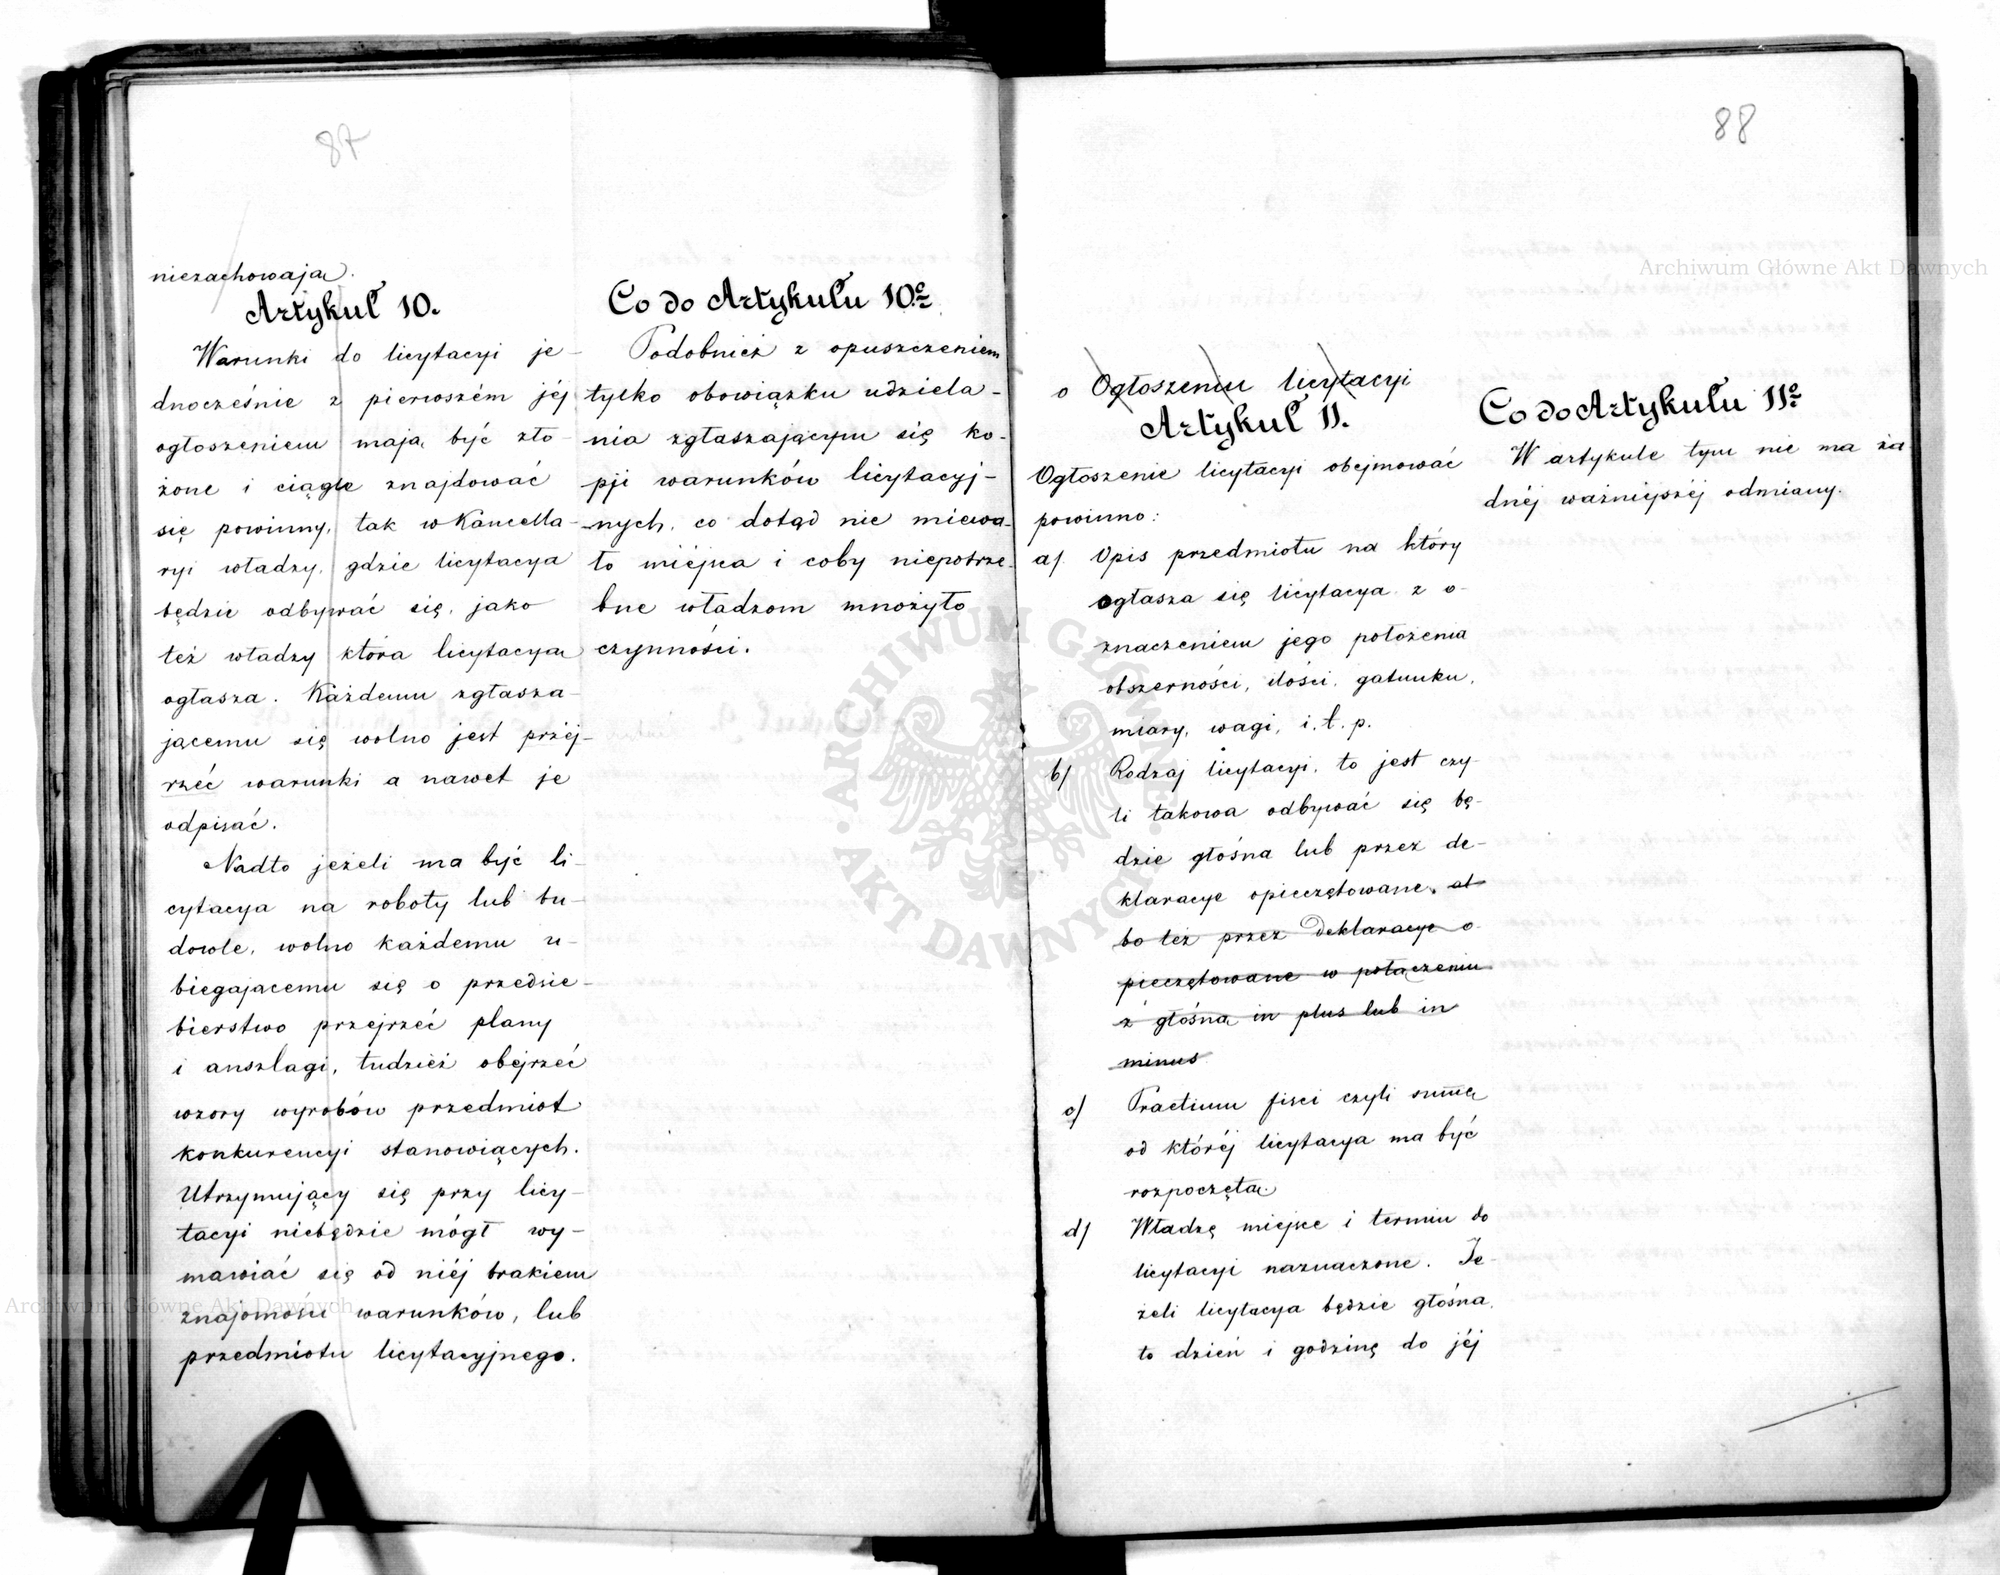 87
niezachowają.
Artykuł 10.
Warunki do licytacyi je-
dnocześnie z pierwszém jéj
ogłoszeniem mają być zło-
żone i ciągle znajdować
się powinny, tak w Kancella-
ryi władzy, gdzie licytacya
będzie odbywać się, jako
też władzy która licytacyą
ogłasza. Każdemu zgłasza-
jącemu się wolno jest przéj-
rzéć warunki a nawet je
odpisać.
Nadto jeżeli ma być li-
cytacya na roboty lub bu-
dowle, wolno każdemu u-
biegajacemu się o przedsie-
bierstwo przejrzéć plany
i anszlagi, tudzież obejrzéć
wzory wyrobów przedmiot
konkurencyi stanowiących.
Utrzymujący się przy licy-
tacyi niebędzie mógł wy-
mawiać się od niéj brakiem
znajomości warunków, lub
przedmiotu licytacyjnego.
Co do Artykułu 10º
Podobnież z opuszczeniem
tylko obowiązku udziela-
nia zgłaszającym się ko-
pji warunków licytacyj-
nych, co dotąd nie miewa-
ło miéjsca i coby niepotrze-
bne władzom mnożyło
czynności.
88
o Ogłoszeniu licytacyi
Artykuł 11.
Ogłoszenie licytacyi obejmować
powinno:
a/ Opis przedmiotu na który
ogłasza się licytacya z o-
znaczeniem jego położenia
obszerności, ilości, gatunku,
miary, wagi, i.t.p.
b/ Rodzaj licytacyi, to jest czy-
li takowa odbywać się bę-
dzie głośna lub przez de-
klaracye opieczętowane, al
bo też przez deklaracye o
pieczętowane w połączeniu
z głośną in plus lub in
minus
c/ Praetium fisci czyli summę
od któréj licytacya ma być
rozpoczęta.
d/ Władzę miejsce i termin do
licytacyi naznaczone. Je-
żeli licytacya będzie głośna,
to dzień i godzinę do jéj
Co do Artykułu 11º
W artykule tym nie ma ża
dnéj ważniejszéj odmiany.
Archiwum Główne Akt Dawnych
Archiwum Główne Akt Dawnych
ARCHIWUM GŁÓWNE
AKT DAWNYCH